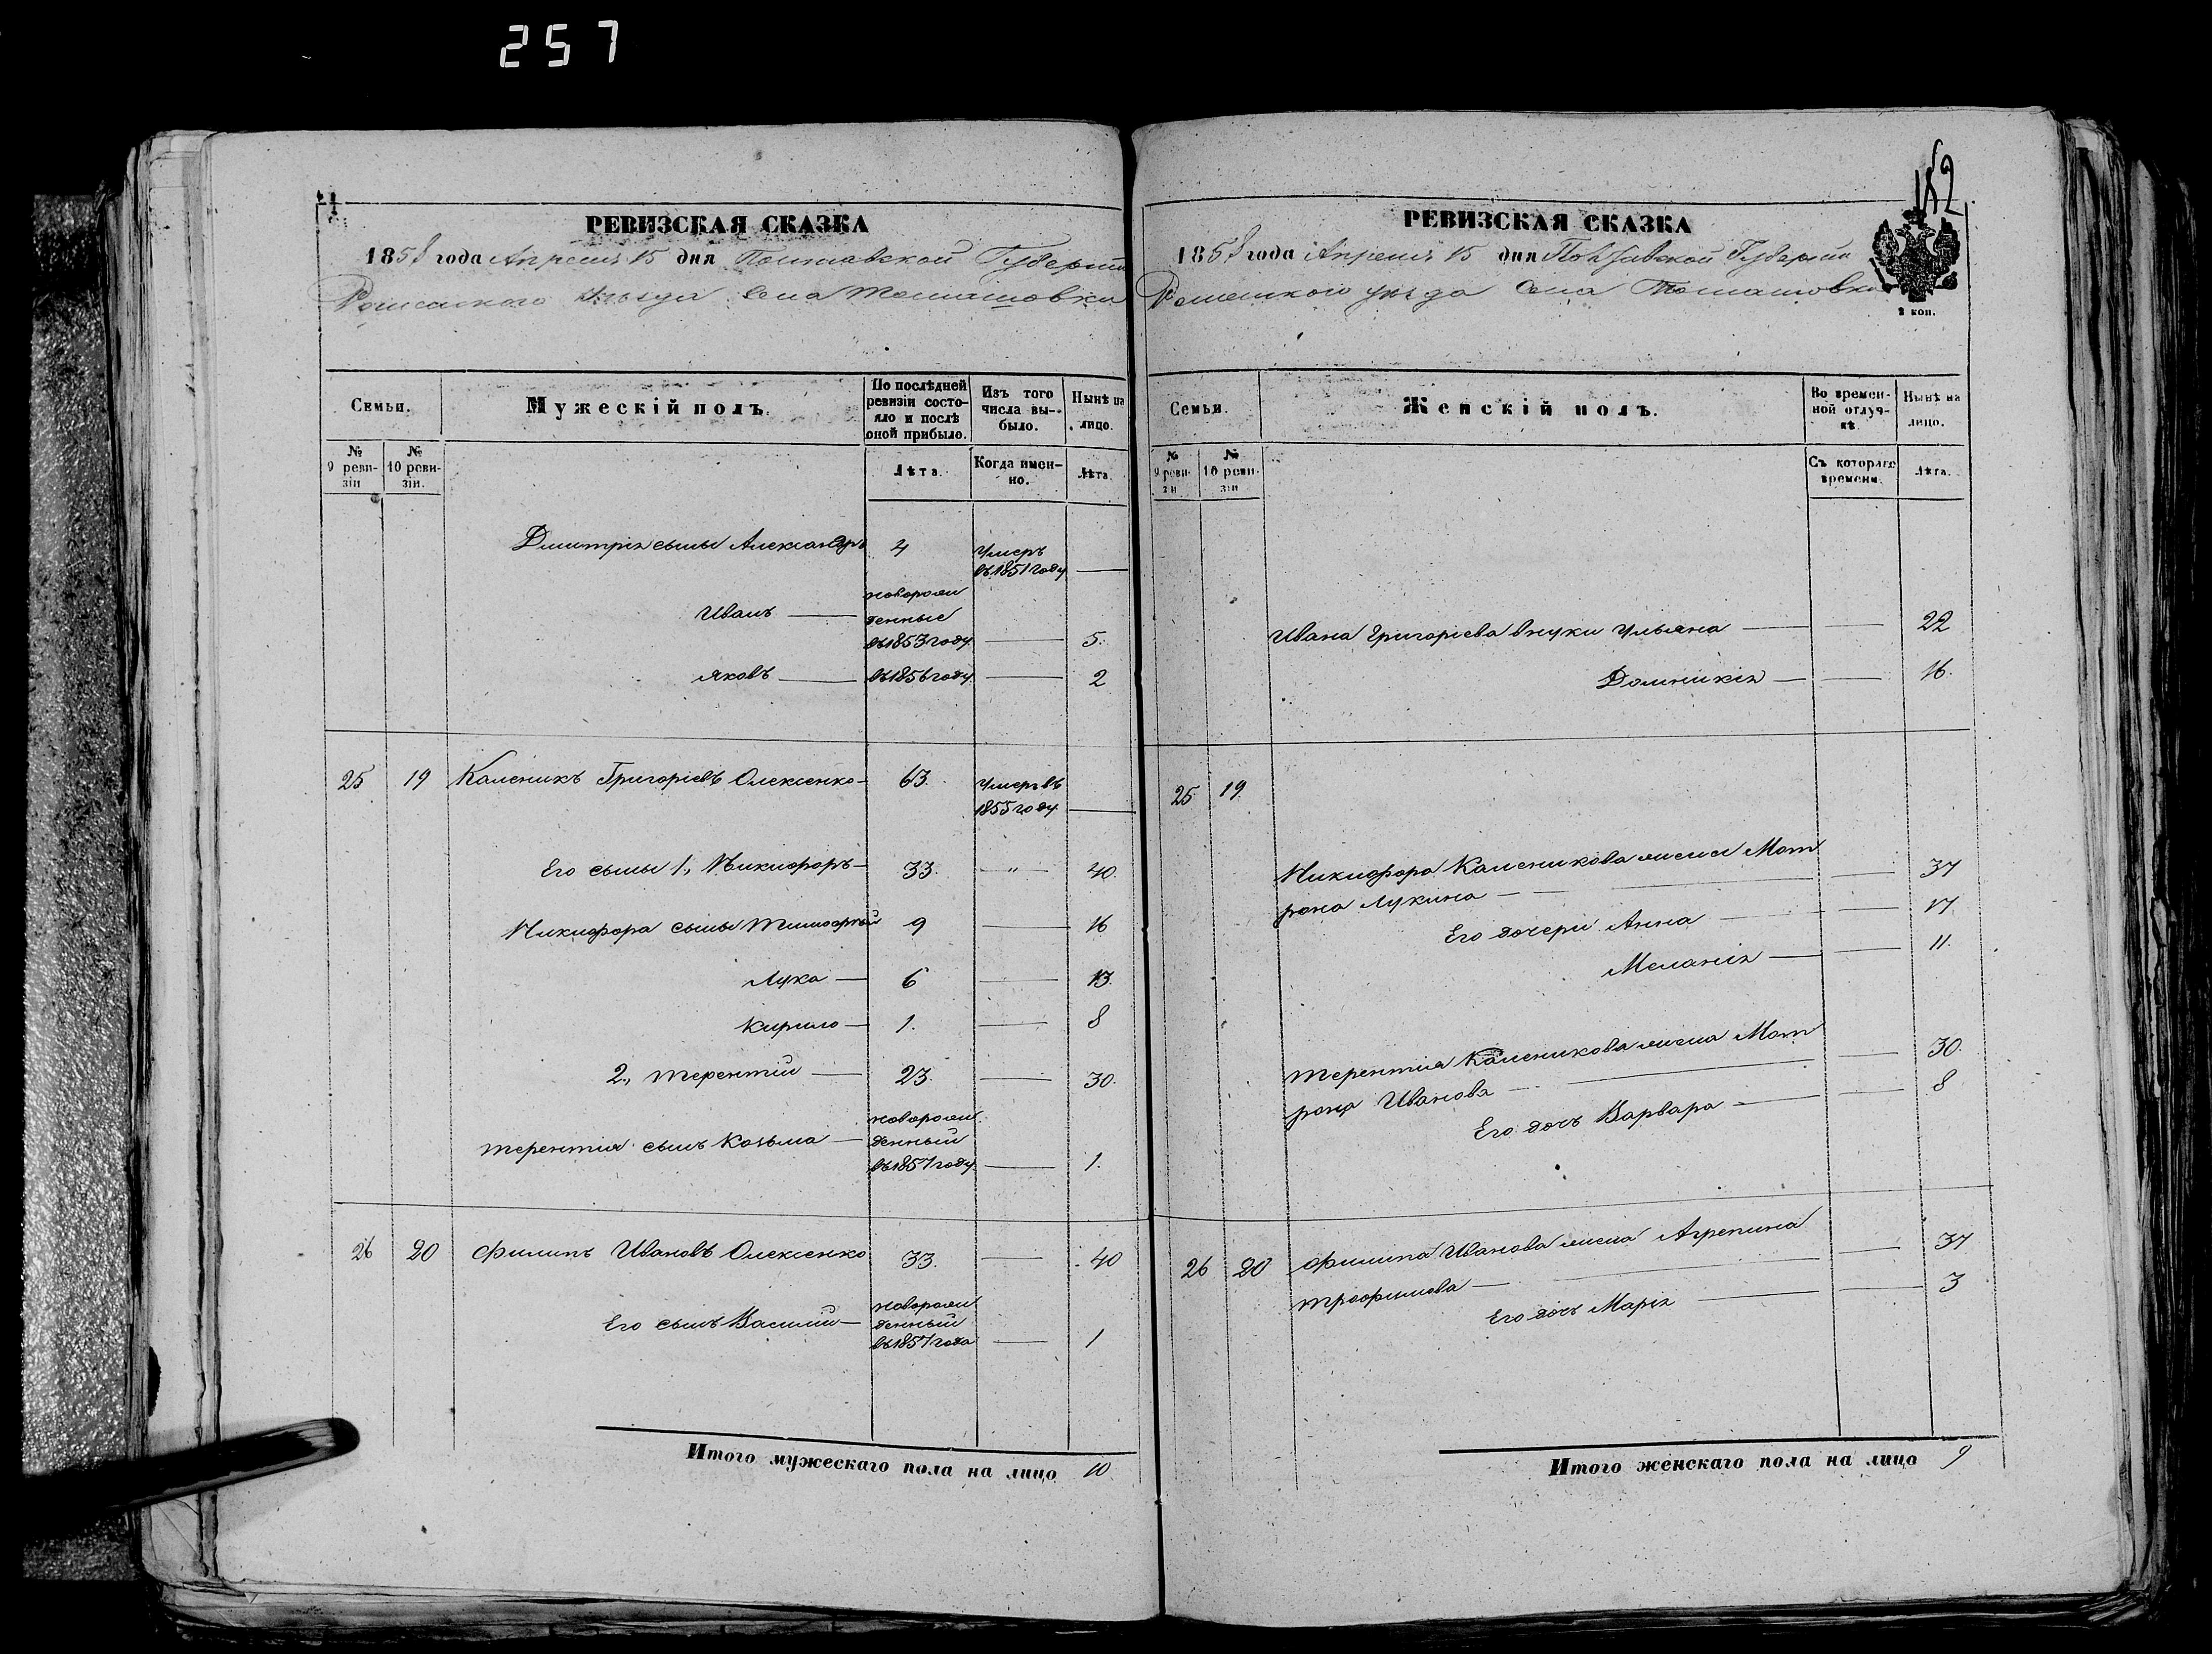 257
РЕВИЗСКАЯ СКАЗКА
1858 года Апреля 15 дня Полтавской Губернии
Роменского Уѣзда Села Томашовки
Семьи.
Мужескій полъ.
По послѣдней ревизіи состояло и послѣ оной прибыло.
Изъ того числа выбыло.
Нынѣ на лицо.
№ 9 ревизіи
№ 10 ревизіи.
Лѣта.
Когда именно.
Лѣта.
Дмитрія сыны Александръ 4 Умеръ
въ 1851 году —
новорожденные
Иванъ — въ 1853 году — 5.
Яковъ — въ 1856 году — 2
25 19 Каленикъ Григоріевъ Олексенко — 63. Умеръ въ
1855 году —
Его сыны 1., Никифоръ — 33. — " — 40.
Никифора сыны Тимофѣй 9 — 16
Лука — 6 — 13.
Кирило — 1. — 8
2., Терентій — 23. — 30.
новорож
Терентія сынъ Козьма — денный
въ 1857 году — 1.
26 20 Филипъ Ивановъ Олексенко 33. — 40
новорож
Его сынъ Василій — денный
въ 1857 года — 1
Итого мужескаго пола на лицо 10
152
РЕВИЗСКАЯ СКАЗКА
1858 года Апреля 15 дня Полтавской Губернии
Роменского уѣзда Села Томашовки
2 коп.
Семьи.
Женскій полъ.
Во временной отлучкѣ.
Нынѣ на лицо.
№ 9 ревизіи
№ 10 ревизіи
Съ котораго времени.
Лѣта.
Ивана Григоріева внуки Ульяна — — 22
Домникія — — 16.
25 19.
Никифора Каленикова жена Мот
рона Лукина — — 37
Его дочери Анна — — 17
Меланія — — 11.
Терентія Каленикова жена Мот
рона Иванова — — 30.
Его дочь Варвара — — 8
26 20 Филипа Иванова жена Агрепина
Трофимова — — 37
Его дочь Марія — — 3
Итого женскаго пола на лицо 9